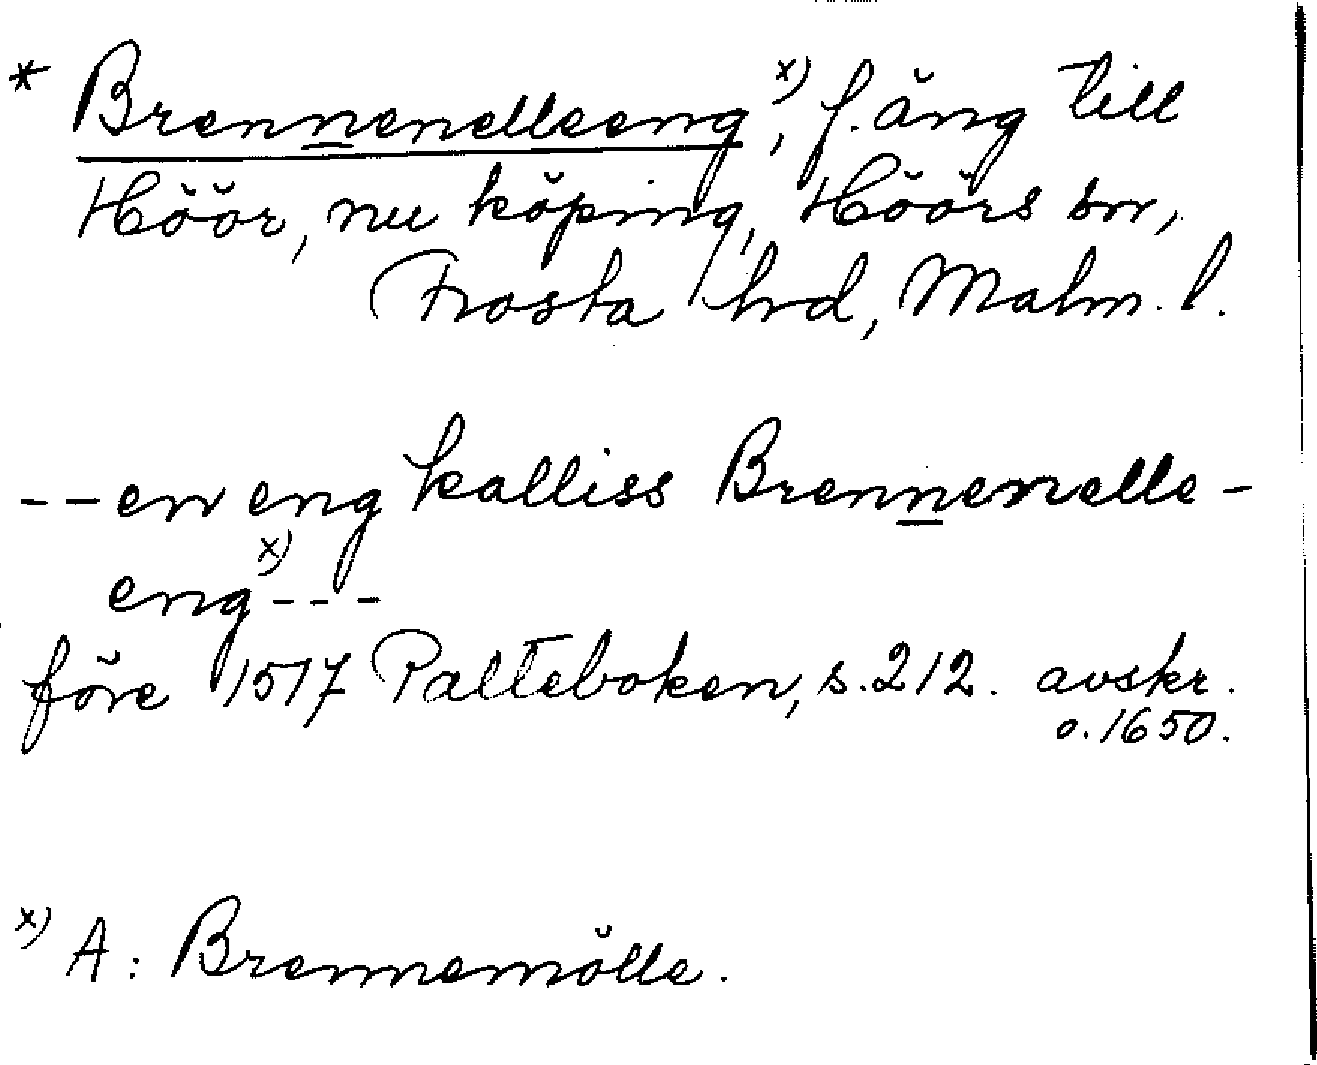 * Brennenelleeng,ˣ⁾ f. äng till
Höör, nu köping, Höörs sn,
Frosta hrd, Malm. l.
-- en eng kalliss Brennenelle-
engˣ⁾ ---
före 1517 Palteboken, s. 212. avskr.
o. 1650.
ˣ⁾ A: Brennemölle.